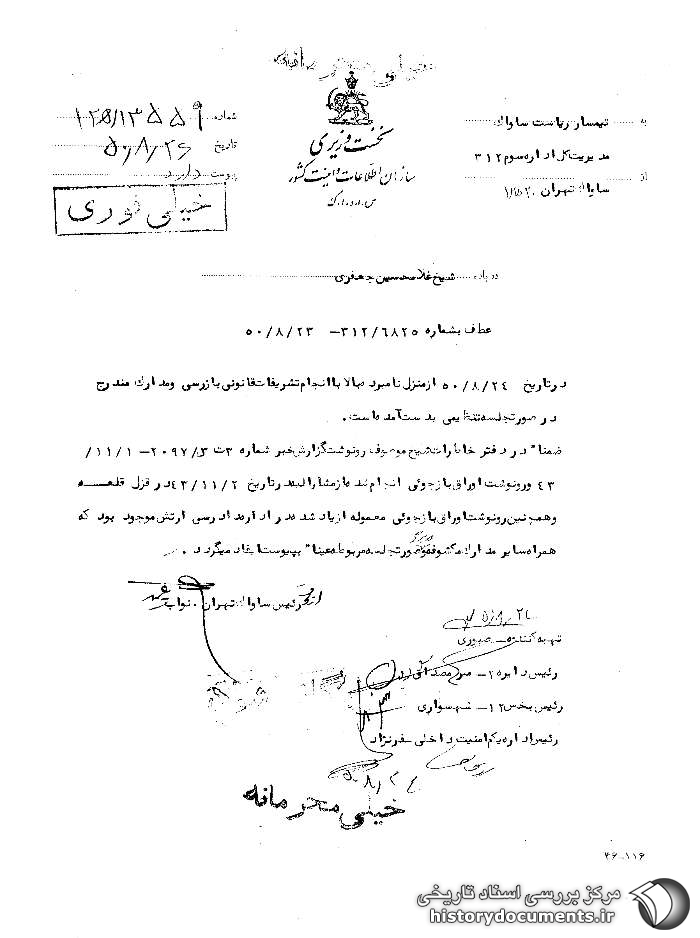 خیلی محرمانه
به تیمسار ریاست ساواک
شماره ۱۲۵۵۹/۱۲۵
نخست وزیری
مدیریت کل اداره سوم ۳۱۲
تاریخ ۵۰/۸/۲۶
سازمان اطلاعات و امنیت کشور
از ساواک تهران ۲۰
پیوست دارد
س.ا.و.ا.ک
خیلی فوری
درباره شیخ غلامحسین جعفری
عطف بشماره ۳۱۲/۶۸۲۵ – ۵۰/۸/۲۳
در تاریخ ۵۰/۸/۲۴ از منزل نامبرده بالا با انجام تشریفات قانونی بازرسی و مدارك مندرج
در صورتجلسه تنظیمی بدست آمده است.
ضمنا" در دفتر خاطرات شیخ موصوف رونوشت گزارش خبر شماره ۳ت ۲۰۹۷/۳ – ۱۱/۱/
۴۳ و رونوشت اوراق بازجوئی انجام شده از مشارالیه در تاریخ ۴۳/۱۱/۲ در قزل قلعه
و همچنین رونوشت اوراق بازجوئی معموله از یاد شده در اداره دادرسی ارتش موجود بود که
همراه سایر مدارك مکشوفه و صورتجلسه مربوطه عینا" بپیوست ایفاد میگردد.
رئیس ساواک تهران. نواب
۵۰/۸/۲۴
تهیه کننده – صبوری
رئیس دایره ۲ –
رئیس بخش ۱۲ – شهسواری
رئیس اداره یکم امنیت داخلی – فرنژاد
۵۰/۸/۲۴
خیلی محرمانه
۴۶-۱۱۶
مرکز بررسی اسناد تاریخی
historydocuments.ir